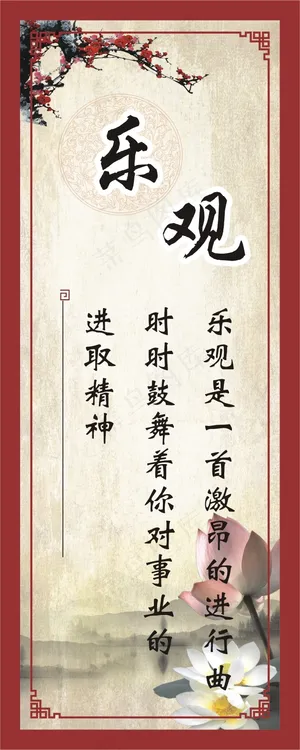 乐观
乐观是一首激昂的进行曲
时时鼓舞着你对事业的
进取精神